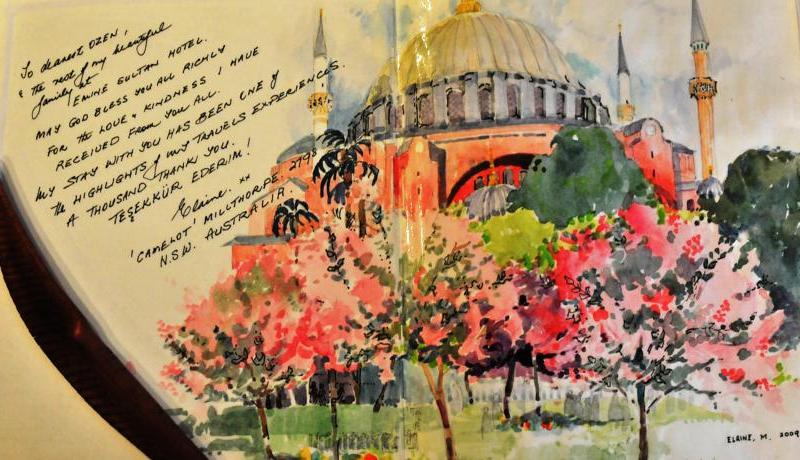 To dearest OZEN,
& the rest of my beautiful
family at
EMINE SULTAN HOTEL.
MAY GOD BLESS YOU ALL RICHLY
FOR the LOVE & KINDNESS I HAVE
RECEIVED FROM YOU ALL.
MY STAY WITH YOU HAS BEEN ONE of
the HIGHLIGHTS of my TRAVELS EXPERIENCES.
A THOUSAND THANK YOU.
TEŞEKKÜR EDERIM!
Elaine. xx
'CAMELOT' MILLTHORPE. 2798
N.S.W. AUSTRALIA.
ELAINE, M. 2009